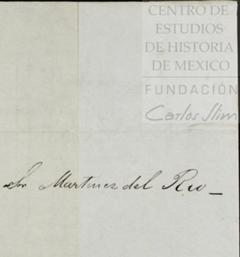 CENTRO DE
ESTUDIOS
DE HISTORIA
DE MEXICO
FUNDACIÓN
Carlos Slim
Sr Martinez del Rio_